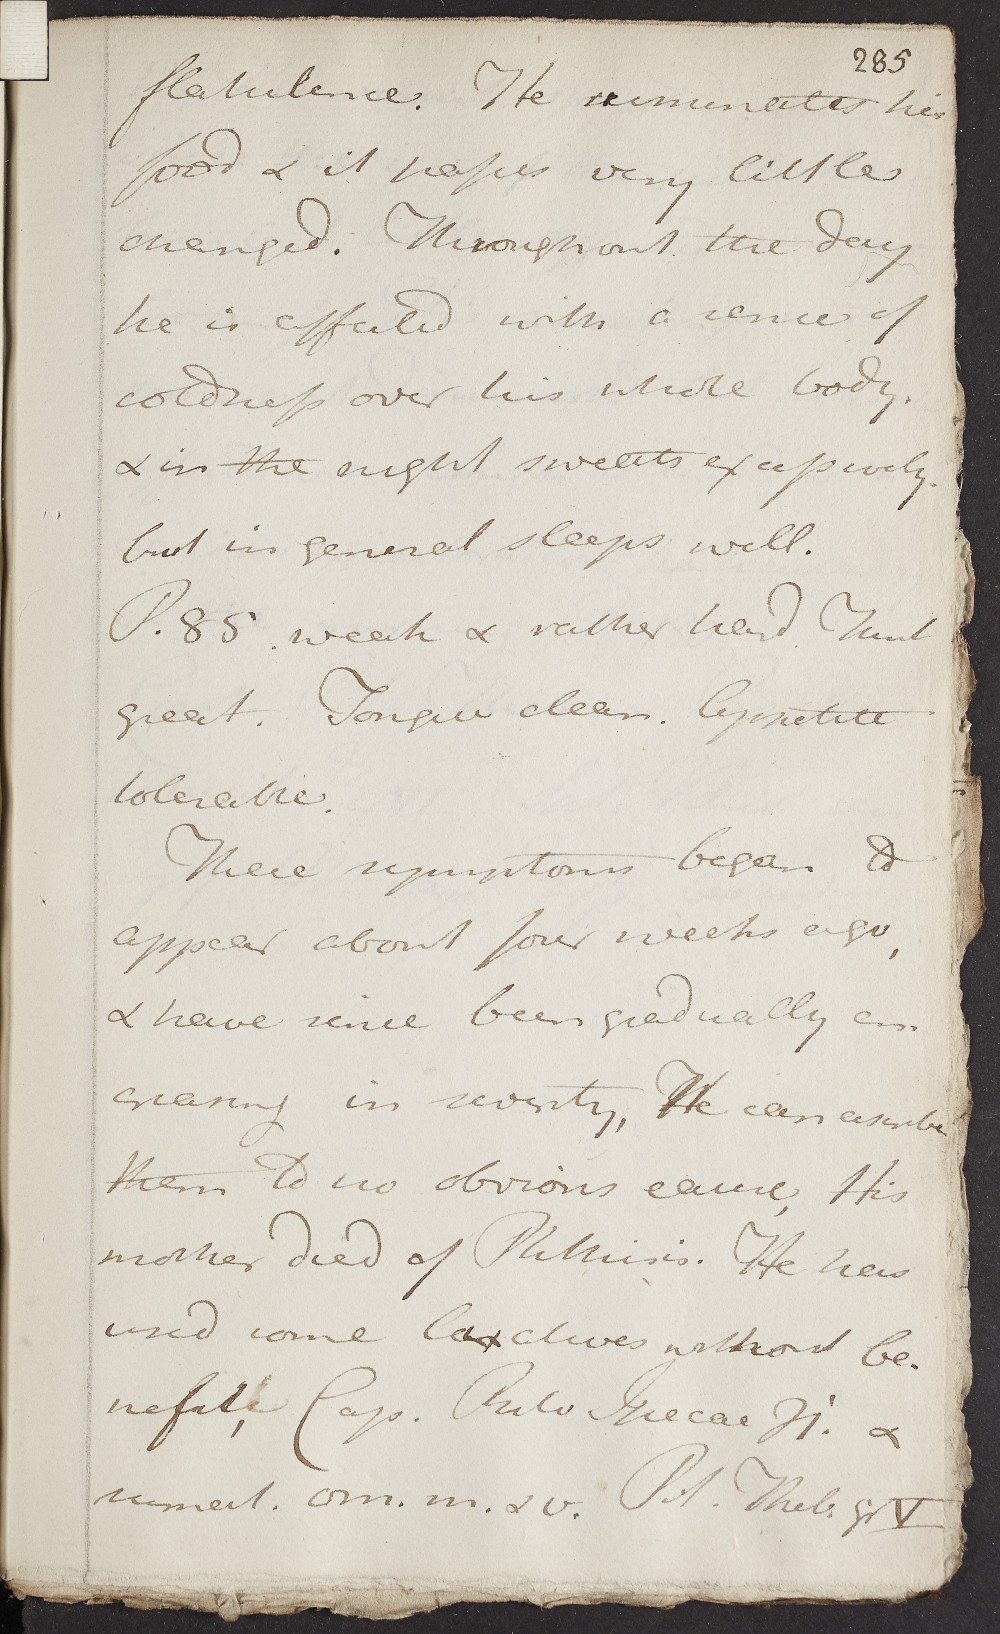 285
flatulence. He ruminates his
food & it passes very little
changed. Throughout the day
he is affected with a sence of
coldness over his whole body.
& in the night sweats excessively.
but in general sleeps well.
P. 85. weak & rather hard Thirst
great. Tongue clean. Appetite
tolerable.
These symptoms began to
appear about four weeks ago,
& have since been gradually en-
creasing in severity, He can ascribe
them to no obvious cause, His
mother died of Phthisis. He has
used some laxatives without be-
nefit, Cap. Pulv Ipecac ℈i. &
sumat. om. m. & v. Pil. Theb. gr V